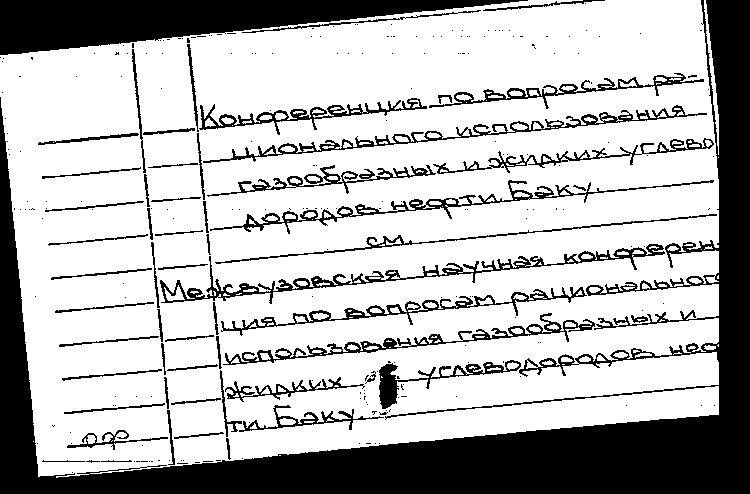 Конференция по вопросам ра-
ционального использования
газообразных и жидких углево
дородов нефти. Баку.
см.
Межвузовская научная конферен-
ция по вопросам рационального
использования газообразных и
жидких углеводородов неф
ти. Баку.
оф